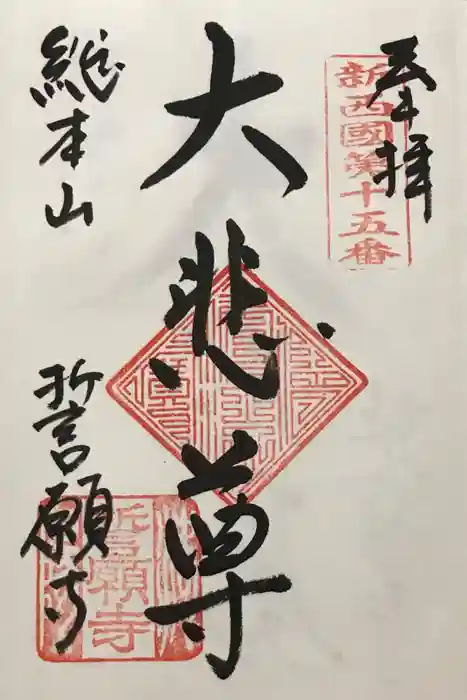 奉拝
新西國第十五番
大悲尊
總本山
誓願寺
誓願寺